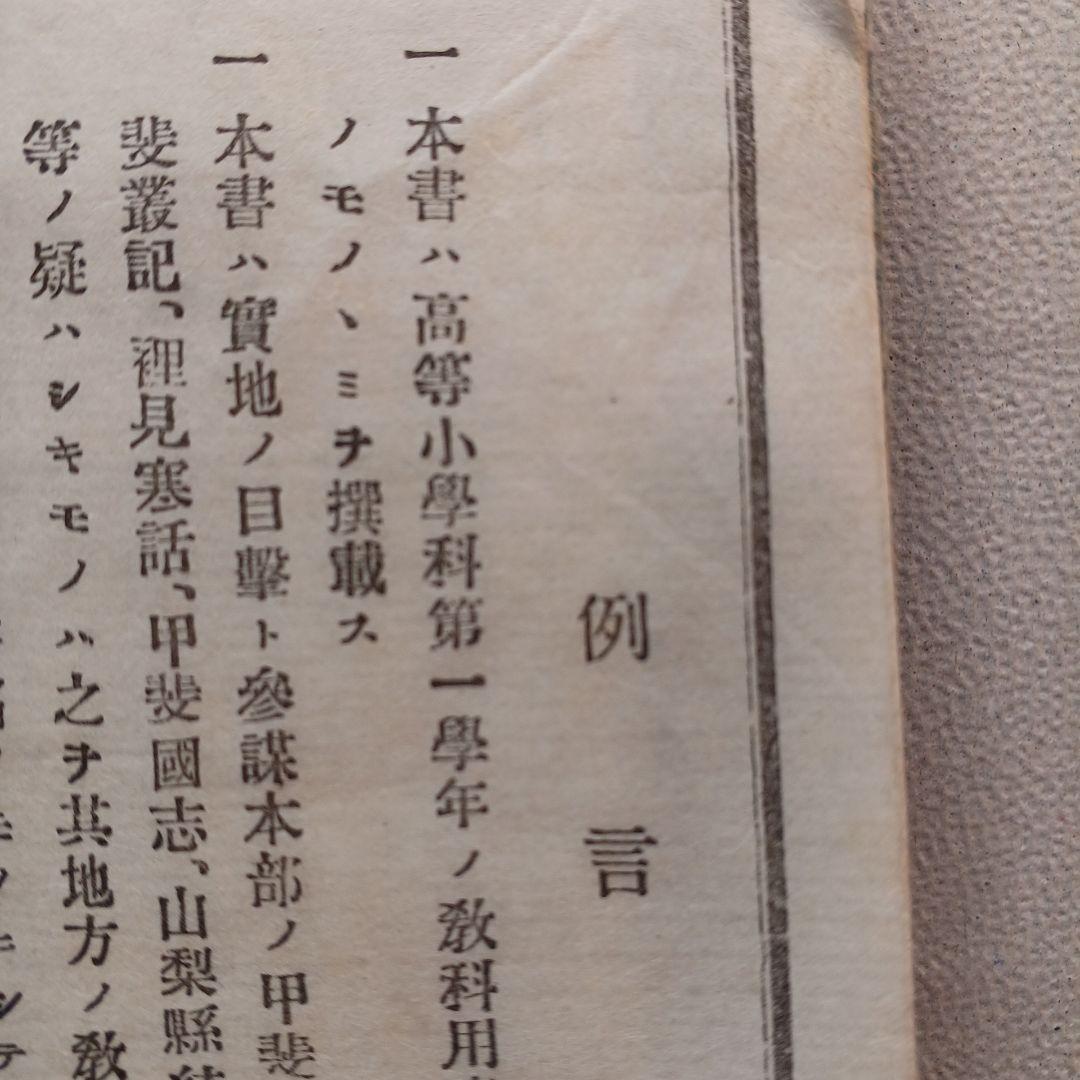 例言
一 本書ハ高等小學科第一學年ノ敎科用
ノモノヽミヲ撰載ス
一 本書ハ實地ノ目擊ト參謀本部ノ甲斐
斐叢記、裡見寒話、甲斐國志、山梨縣
等ノ疑ハシキモノハ之ヲ其地方ノ敎